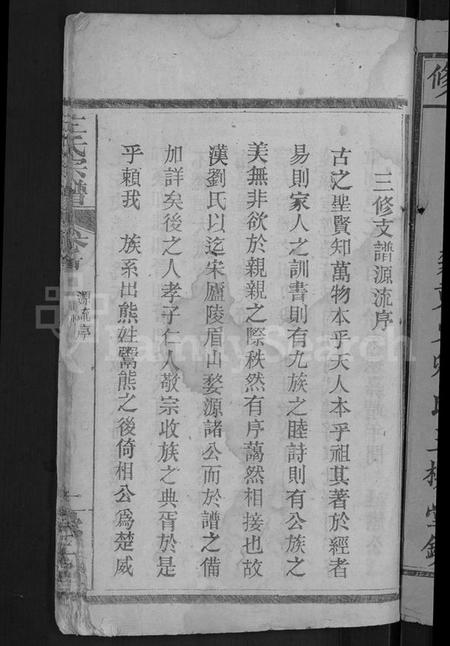 三修支譜源流序
古之聖賢知萬物本乎天人本乎祖其著於經者
易則家人之訓書則有九族之睦詩則有公族之
美無非欲於親親之際秩然有序藹然相接也故
漢劉氏以迄宋廬陵眉山婺源諸公而於譜之備
加詳矣後之人孝子仁人敬宗收族之典胥於是
乎賴我 族系出熊姓鬻熊之後倚相公為楚威
氏宗譜
卷首
源流序
一
修
FamilySearch